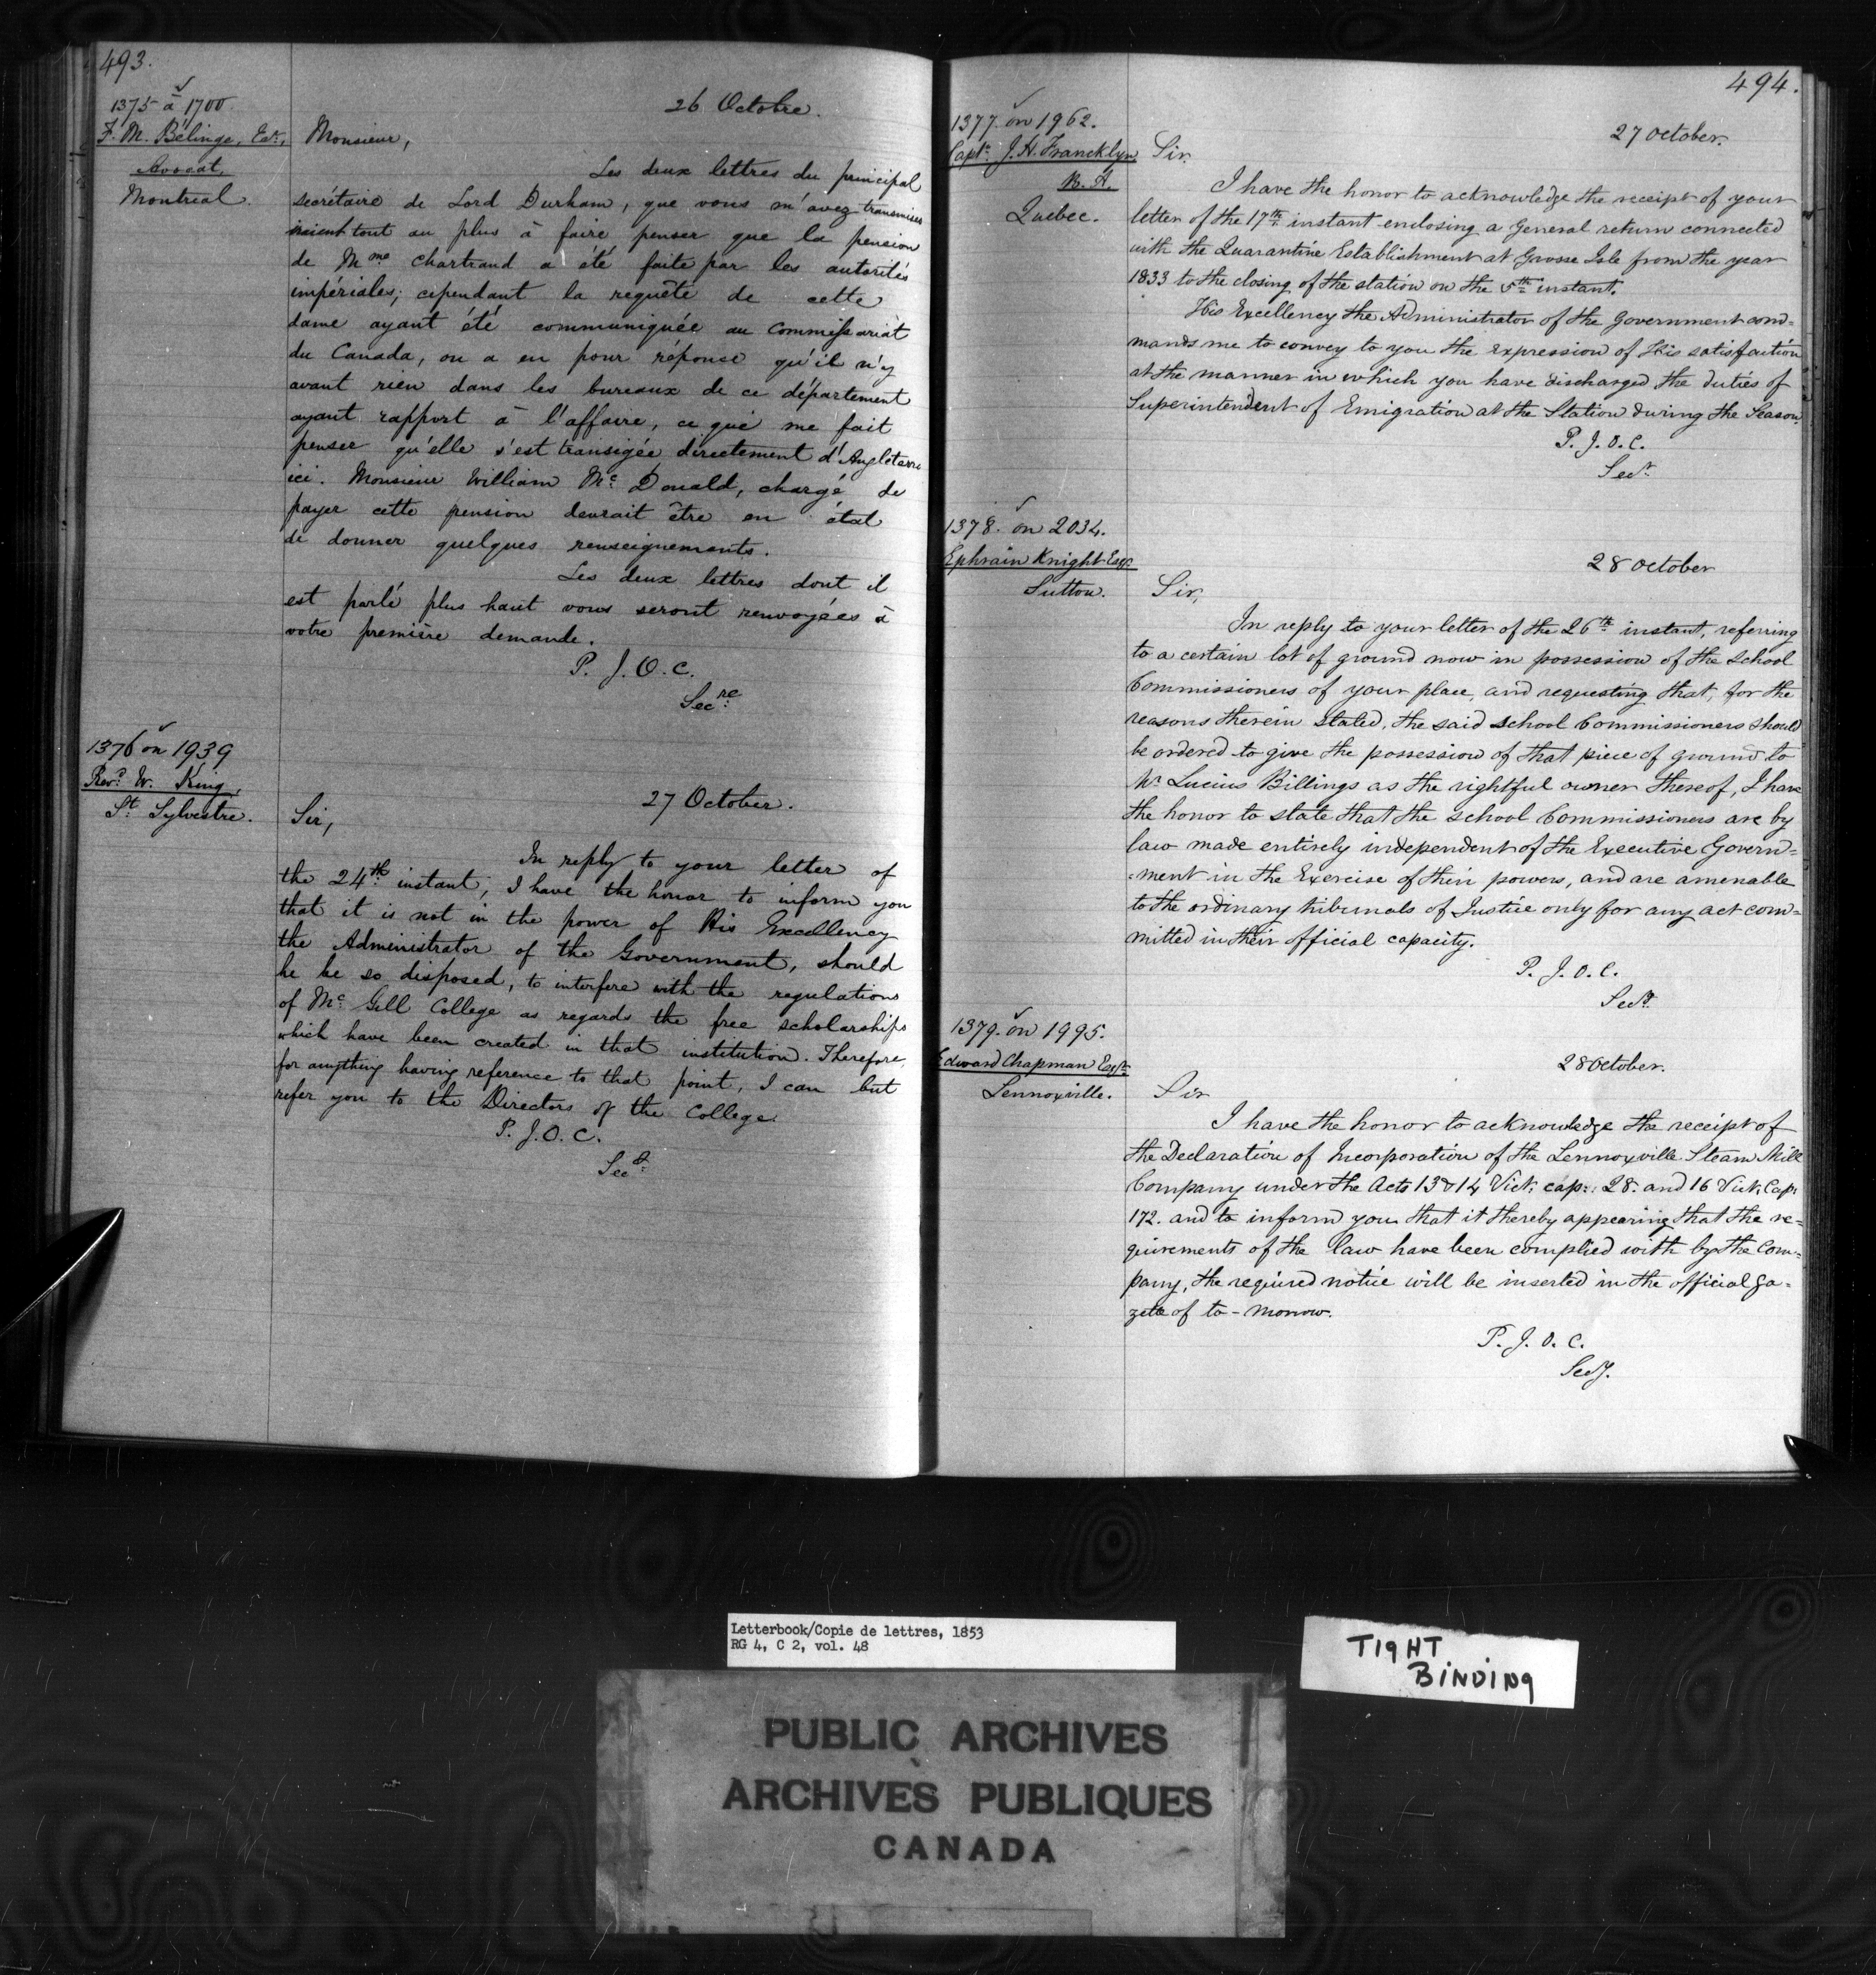 493.
1375 à 1700
F. M. Bélinge, Ecr.,
Avocat,
Montreal.
26 Octobre.
Monsieur,
Les deux lettres du principal
secrétaire de Lord Durham, que vous m'avez transmises
tout au plus à faire penser que la pension
de Mme Chartrand a été faite par les autorités
impériales; cependant la requête de cette
dame ayant été communiquée au Commissariat
du Canada, on a eu pour réponse qu'il n'y
avait rien dans les bureaux de ce département
ayant rapport à l'affaire, ce qui me fait
penser qu'elle s'est transigée directement d'Angleterre
ici. Monsieur William Mc Donald, chargé de
payer cette pension devrait être en état
de donner quelques renseignements.
Les deux lettres dont il
est parlé plus haut vous seront renvoyées à
votre première demande.
P. J. O. C.
Secre
1376 on 1939
Revd. W. King,
St. Sylvestre.
27 October.
Sir,
In reply to your letter of
the 24th instant, I have the honor to inform you
that it is not in the power of His Excellency
the Administrator of the Government, should
he be so disposed, to interfere with the regulations
of Mc Gill College as regards the free scholarships
which have been created in that institution. Therefore,
for anything having reference to that point, I can but
refer you to the Directors of the College.
P. J. O. C.
Secy.
494.
1377 on 1962.
Capt. J. H. Francklyn
R. A.
Quebec.
27 October.
Sir
I have the honor to acknowledge the receipt of your
letter of the 17th instant enclosing a General return connected
with the Quarantine Establishment at Grosse Isle from the year
1833 to the closing of the station on the 5th instant.
His Excellency the Administrator of the Government com=
mands me to convey to you the expression of His satisfaction
at the manner in which you have discharged the duties of
Superintendent of Emigration at the Station during the Season.
P. J. O. C.
Secy.
1378. on 2034.
Ephraim Knight Esqr.
Sutton.
28 October
Sir,
In reply to your letter of the 26th instant, referring
to a certain lot of ground now in possession of the School
Commissioners of your place, and requesting that, for the
reasons therein stated, the said School Commissioners should
be ordered to give the possession of that piece of ground to
Mr Lucius Billings as the rightful owner thereof, I have
the honor to state that the School Commissioners are by
law made entirely independent of the Executive Govern=
=ment in the Exercise of their powers, and are amenable
to the ordinary tribunals of Justice only for any act com=
mitted in their official capacity.
P. J. O. C.
Secy.
1379. on 1995.
Edward Chapman Esqr.
Lennoxville.
28 October.
Sir
I have the honor to acknowledge the receipt of
the Declaration of Incorporation of the Lennoxville Steam Mill
Company under the Acts 13 & 14 Vict. cap: 28. and 16 Vict. Cap:
172. and to inform you that it thereby appearing that the re=
quirements of the law have been complied with by the Com=
pany, the required notice will be inserted in the official Ga=
zette of to-morrow.
P. J. O. C.
Secy.
Letterbook/Copie de lettres, 1853
RG 4, C 2, vol. 48
TIGHT
BINDING
PUBLIC ARCHIVES
ARCHIVES PUBLIQUES
CANADA